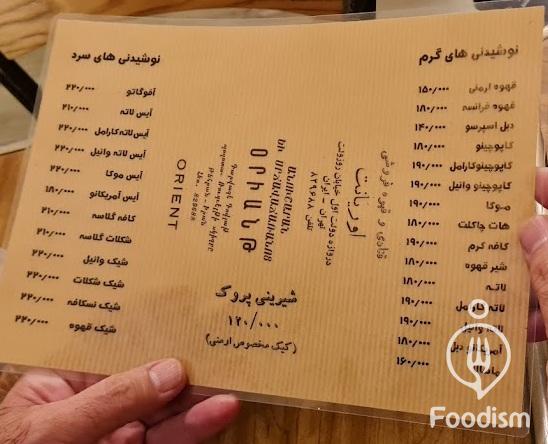 نوشیدنی های گرم
قهوه ارمنی ۱۵۰/۰۰۰
قهوه فرانسه ۱۸۰/۰۰۰
دبل اسپرسو ۱۴۰/۰۰۰
کاپوچینو ۱۸۰/۰۰۰
کاپوچینوکارامل ۱۹۰/۰۰۰
کاپوچینو وانیل ۱۹۰/۰۰۰
موکا ۱۹۰/۰۰۰
هات چاکلت ۱۸۰/۰۰۰
کافه کرم ۱۹۰/۰۰۰
شیر قهوه ۱۸۰/۰۰۰
لاته ۱۸۰/۰۰۰
لاته کارامل ۱۹۰/۰۰۰
لاته وانیل ۱۹۰/۰۰۰
آمریکانو دبل ۱۸۰/۰۰۰
۱۶۰/۰۰۰
قنادی و قهوه فروشی
اوریانت
دروازه دولت اول خیابان روزولت
تهران - ایران
تلفن ۸۲۹۶۸۸
ԱՆՈՒՇԱՐԱՆ
ԵՒ ՍՐՃԱՎԱՃԱՌԱՆՈՑ
ՕՐԻԱՆԹ
ORIENT
شیرینی پروک
۱۲۰/۰۰۰
(کیک مخصوص ارمنی)
نوشیدنی های سرد
آفوگاتو ۲۲۰/۰۰۰
آیس لاته ۲۱۰/۰۰۰
آیس لاته کارامل ۲۲۰/۰۰۰
آیس لاته وانیل ۲۲۰/۰۰۰
آیس موکا ۲۲۰/۰۰۰
آیس آمریکانو ۱۸۰/۰۰۰
کافه گلاسه ۲۱۰/۰۰۰
شکلات گلاسه ۲۱۰/۰۰۰
شیک وانیل ۲۲۰/۰۰۰
شیک شکلات ۲۲۰/۰۰۰
شیک نسکافه ۲۲۰/۰۰۰
شیک قهوه ۲۲۰/۰۰۰
Foodism